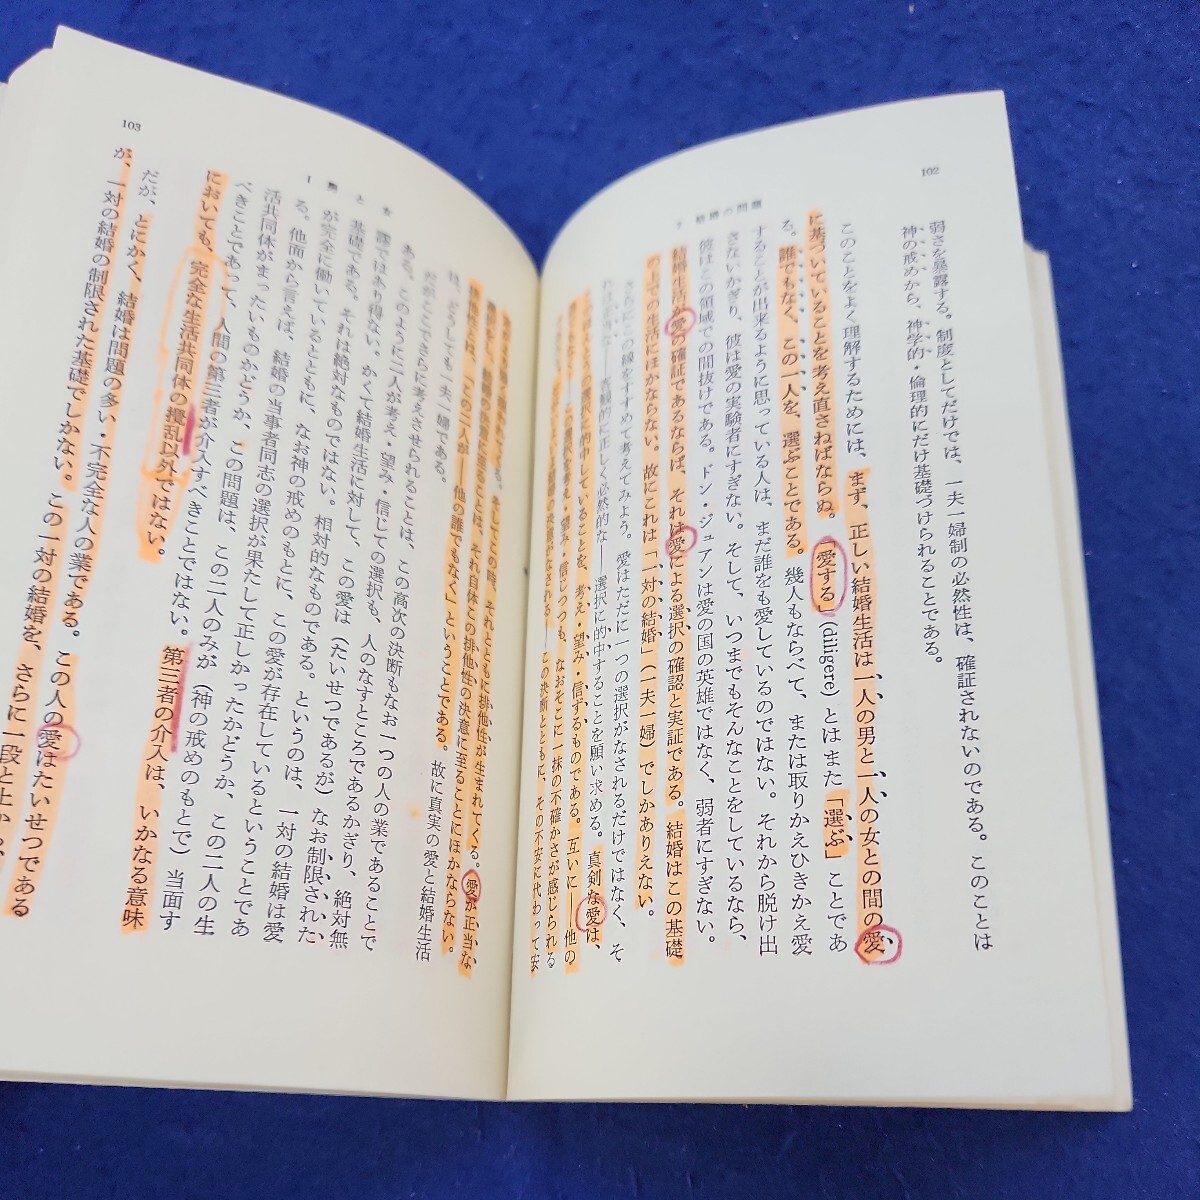 102
7 結婚の問題
弱さを暴露する。制度としてだけでは、一夫一婦制の必然性は、確証されないのである。このことは
神の戒めから、神学的・倫理的にだけ基礎づけられることである。
このことをよく理解するためには、まず、正しい結婚生活は一人の男と一人の女との間の愛
に基づいていることを考え直さねばならぬ。「愛する」(diligere)とはまた「選ぶ」ことであ
る。誰でもなく、この一人を、選ぶことである。幾人もならべて、または取りかえひきかえ愛
することが出来るように思っている人は、まだ誰をも愛しているのではない。それから脱け出
さないかぎり、彼は愛の実験者にすぎない。そして、いつまでもそんなことをしているなら、
彼はこの領域での間抜けである。ドン・ジュアンは愛の国の英雄ではなく、弱者にすぎない。
結婚生活が愛の確証であるならば、それは愛による選択の確認と実証である。結婚はこの基礎
の上での生活にほかならない。故にこれは「一対の結婚」(一夫一婦)でしかありえない。
さらにこの線をすすめて考えてみよう。愛はただに一つの選択がなされるだけではなく、そ
れは正しい――客観的に正しく必然的な――選択に的中することを願い求める。真剣な愛は、
人と人との選択に的中していることを、考え・望み・信ずるものである。互いに――他の
この選択を考え・望み・信じつつも、なおそこに一抹の不確かさが感じられる
結婚の決意がなされる――この決断とともに、その不安に代わって安
103
I 男と女
そしてこの時、それとともに排他性が生まれてくる。愛が正当な、
結婚の決意に至ることは、それ自体この排他性の決意に至ることにほかならない。
「この二人が――他の誰でもなく」ということである。故に真実の愛と結婚生活
は、どうしても一夫一婦である。
だがここでさらに考えさせられることは、この高次の決断もなお一つの人の業であることで
ある。このように二人が考え・望み・信じての選択も、人のなすところであるかぎり、絶対無
謬ではあり得ない。かくて結婚生活に対して、この愛は(たいせつであるが)なお制限された
基礎である。それは絶対なものではない。相対的なものである。というのは、一対の結婚は愛
が完全に働いているとともに、なお神の戒めのもとに、この愛が存在しているということであ
る。他面から言えば、結婚の当事者同志の選択が果たして正しかったかどうか、この二人の生
活共同体がまったいものかどうか、この問題は、この二人のみが(神の戒めのもとで)当面す
べきことであって、人間の第三者が介入すべきことではない。第三者の介入は、いかなる意味
においても、完全な生活共同体の攪乱以外ではない。
だが、とにかく、結婚は問題の多い・不完全な人の業である。この人の愛はたいせつである
が、一対の結婚の制限された基礎でしかない。この一対の結婚を、さらに一段と